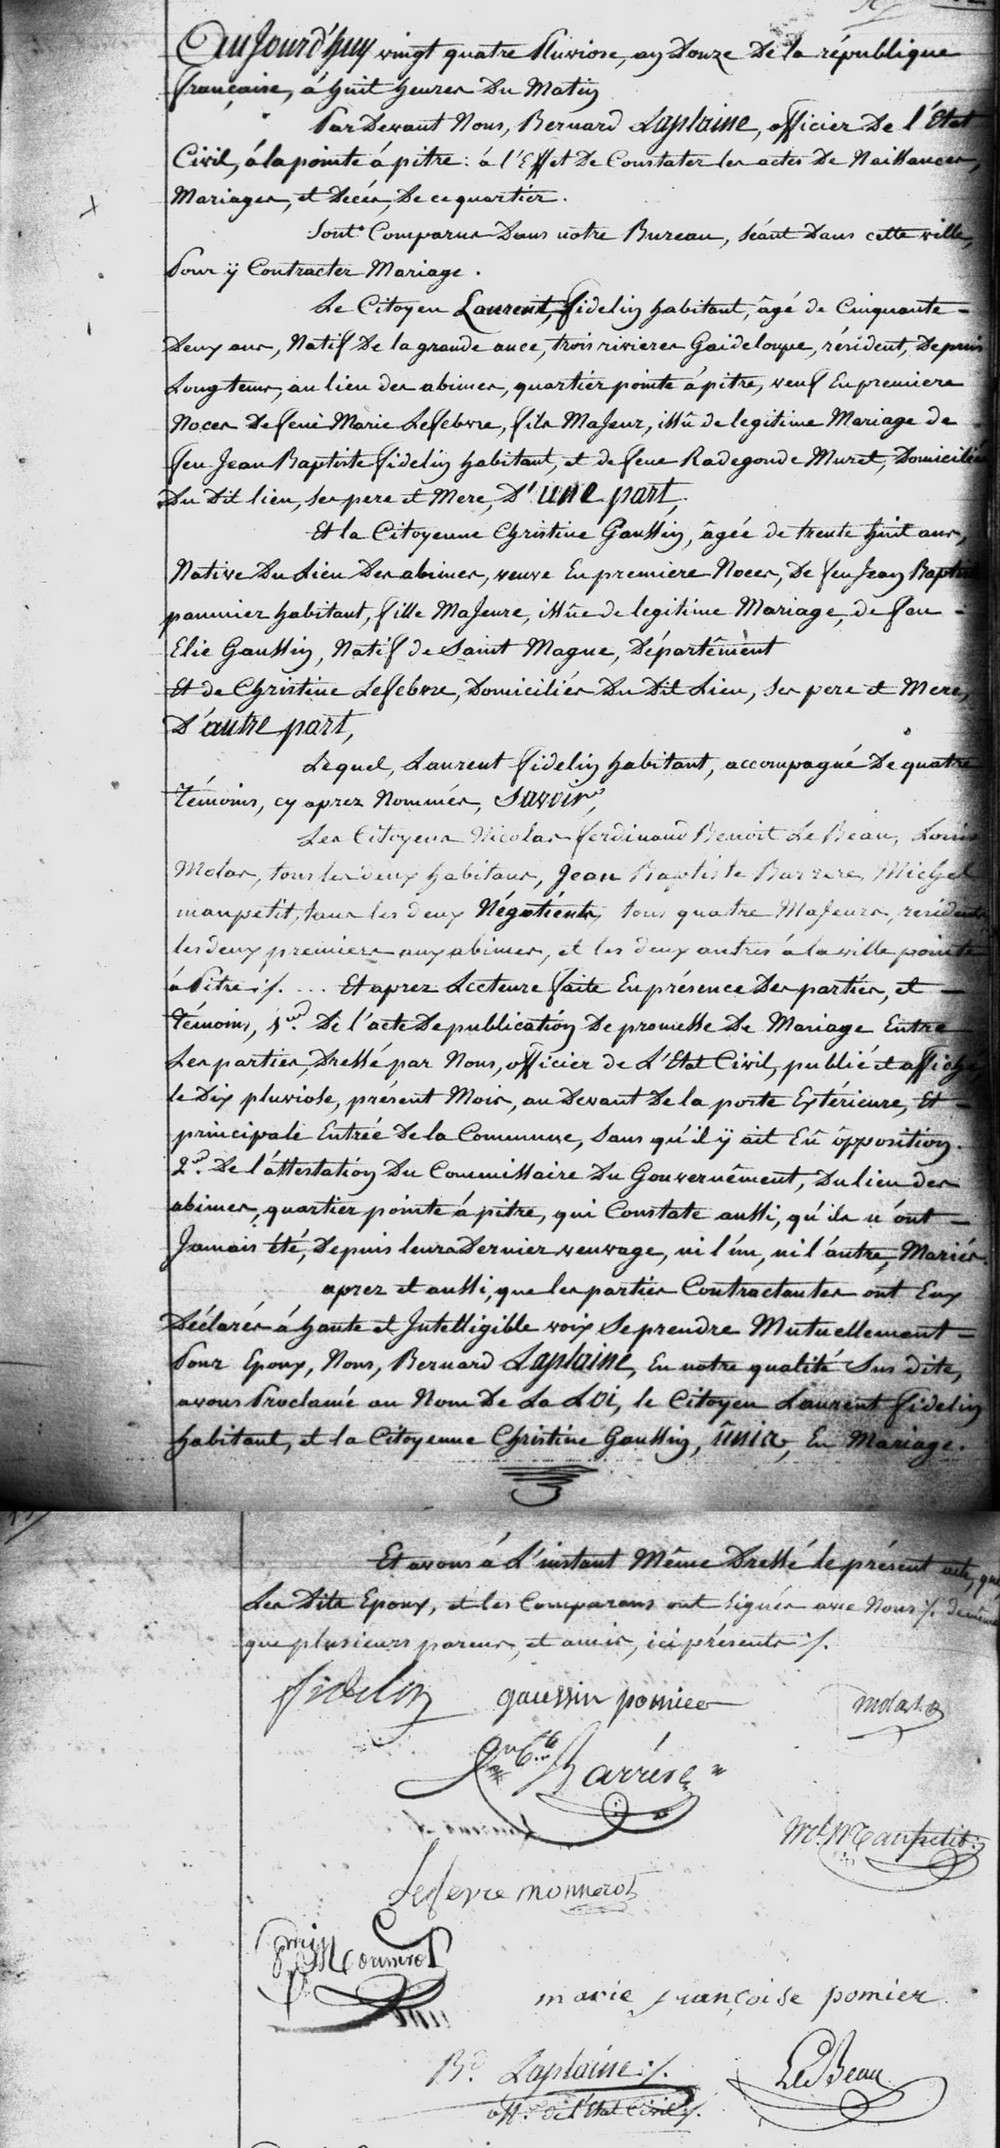 Aujourd'huy vingt quatre Pluviose, an Douze De la république
française, à huit heures Du Matin
Par Devant Nous, Bernard Laplaine, officier De l'Etat
Civil, à la pointe à pitre : à l'Effet De Constater les actes De Naissances,
Mariages, et Décès, De ce quartier.
Sont Comparus Dans notre Bureau, séant Dans cette ville,
Pour ÿ Contracter Mariage.
Le Citoyen Laurent, fidelin habitant, âgé de Cinquante -
Deux ans, Natif De la grande ance, trois rivieres Gaideloupe, résident, Depuis
Longtems, au lieu des abimes, quartier pointe à pitre, veuf En premiere
Noces De feue Marie Lefebvre, fils Majeur, issû de legitime Mariage de
feu Jean Baptiste fidelin habitant, et de feue Radegonde Muret, Domiciliés
Du Dit lieu, ses pere et Mere, D'une part,
Et la Citoyenne Christine Gaussin, âgée de trente huit ans,
Native Du Lieu Des abimes, veuve En premiere Noces, De feu Jean Baptiste
paumier habitant, fille Majeure, issûe de legitime Mariage, de feu -
Elie Gaussin, Natif de Saint Magne, Départêment
Et de Christine Lefebvre, Domiciliés Du Dit Lieu, ses pere et Mere,
D'autre part,
Lequel, Laurent fidelin habitant, accompagné De quatre
témoins, cy aprez Nommés, Savoir,
Les Citoyens Nicolas ferdinand Benoit Le Beau, Louis
Molas, tous les deux habitans, Jean Baptiste Barrere, Michel
maupetit, tous les deux Négotients, tous quatre Majeurs, résidents
les deux premiers aux abimes, et les deux autres à la ville pointe
à Pitre ./. ... Et aprez Lecteure faite En présence Des parties, et -
témoins, 1.º De l'acte De publication De promesse De Mariage Entre
Les parties, Dressé par Nous, officier de L'Etat Civil, publié et affiché
le Dix pluviose, présent Mois, au Devant De la porte Extérieure, Et -
principale Entrée De la Commune, sans qu'il ÿ ait Eû ôpposition.
2.º De l'attestation Du Commissaire Du Gouvernêment, Du lieu des
abimes, quartier pointe à pitre, qui Constate aussi, qu'ils n'ont -
Jamais été, Depuis leurs Dernier veuvage, ni l'ún, ni l'autre, Mariés.
aprez et aussi, que les parties Contractantes ont Eux
Déclarés à haute et Intelligible voix Se prendre Mutuellement -
Pour Epoux, Nous, Bernard Laplaine, En notre qualité Sus dite,
avons Proclamé au Nom De La Loi, le Citoyen Laurent fidelin
habitant, et la Citoyenne Christine Gaussin, ûnis, En Mariage.
Et avons à L'instant Même Dressé le présent acte, que
Les Dits Epoux, et les Comparans ont signés avec Nous ./. de même
que plusieurs parens, et amis, ici présents ./.
fidelin gaussin pomier molas
Jn Bte Barrère
Mel Maupetit
Lefevre monnerot
Monnerot
marie françoise pomier
Bd Laplaine ./. LeBeau
off. de l'Etat Civil ./.